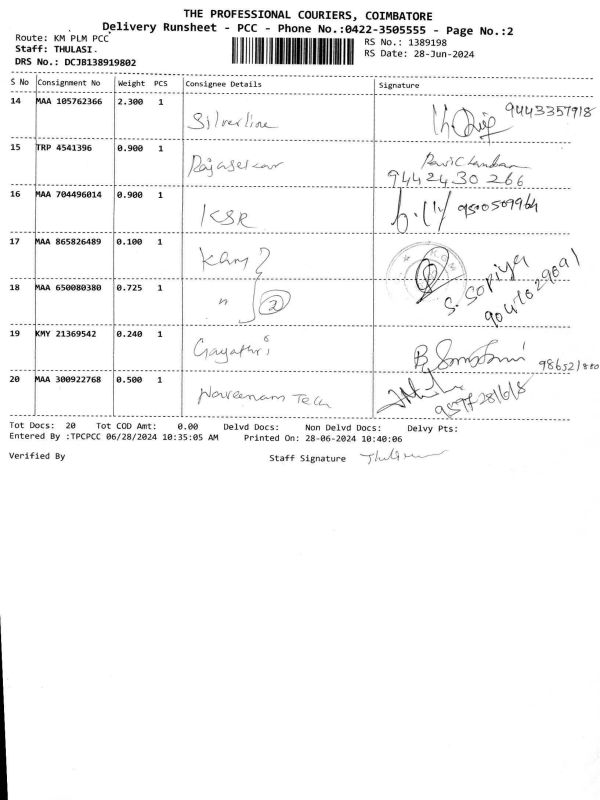 THE PROFESSIONAL COURIERS, COIMBATORE
Delivery Runsheet - PCC - Phone No.:0422-3505555 - Page No.:2
Route: KM PLM PCC
RS No.: 1389198
Staff: THULASI.
RS Date: 28-Jun-2024
DRS No.: DCJB138919802
S No Consignment No Weight PCS Consignee Details Signature
14 MAA 105762366 2.300 1 Silverline 9443357918
15 TRP 4541396 0.900 1 Rajasekar Ravi Chandran
9442430266
16 MAA 704496014 0.900 1 KSR 9500509964
17 MAA 865826489 0.100 1
18 MAA 650080380 0.725 1 " 2 S. Sopiya
9047029091
19 KMY 21369542 0.240 1 Gayathri
20 MAA 300922768 0.500 1 Naveenam Tech
Tot Docs: 20 Tot COD Amt: 0.00 Delvd Docs: Non Delvd Docs: Delvy Pts:
Entered By :TPCPCC 06/28/2024 10:35:05 AM Printed On: 28-06-2024 10:40:06
Verified By Staff Signature